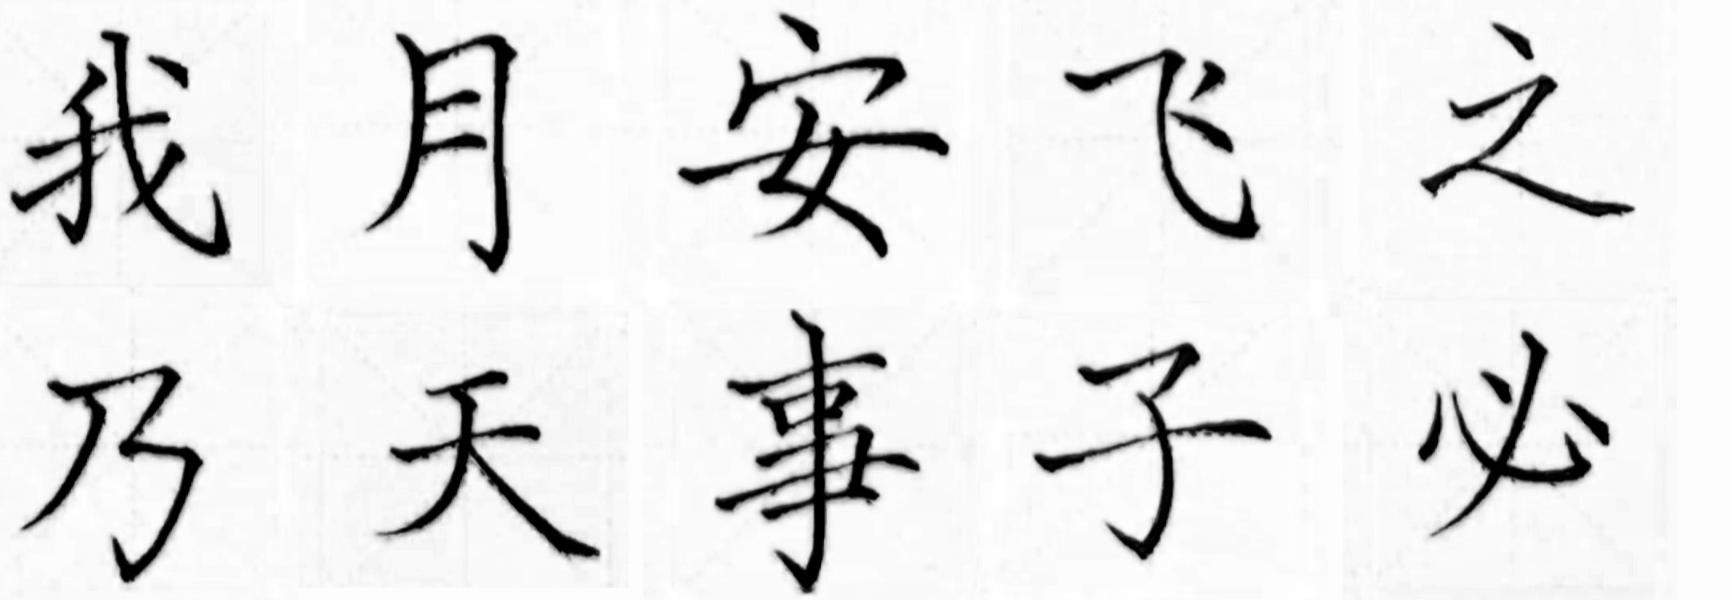 我月安飞之
乃天事子必